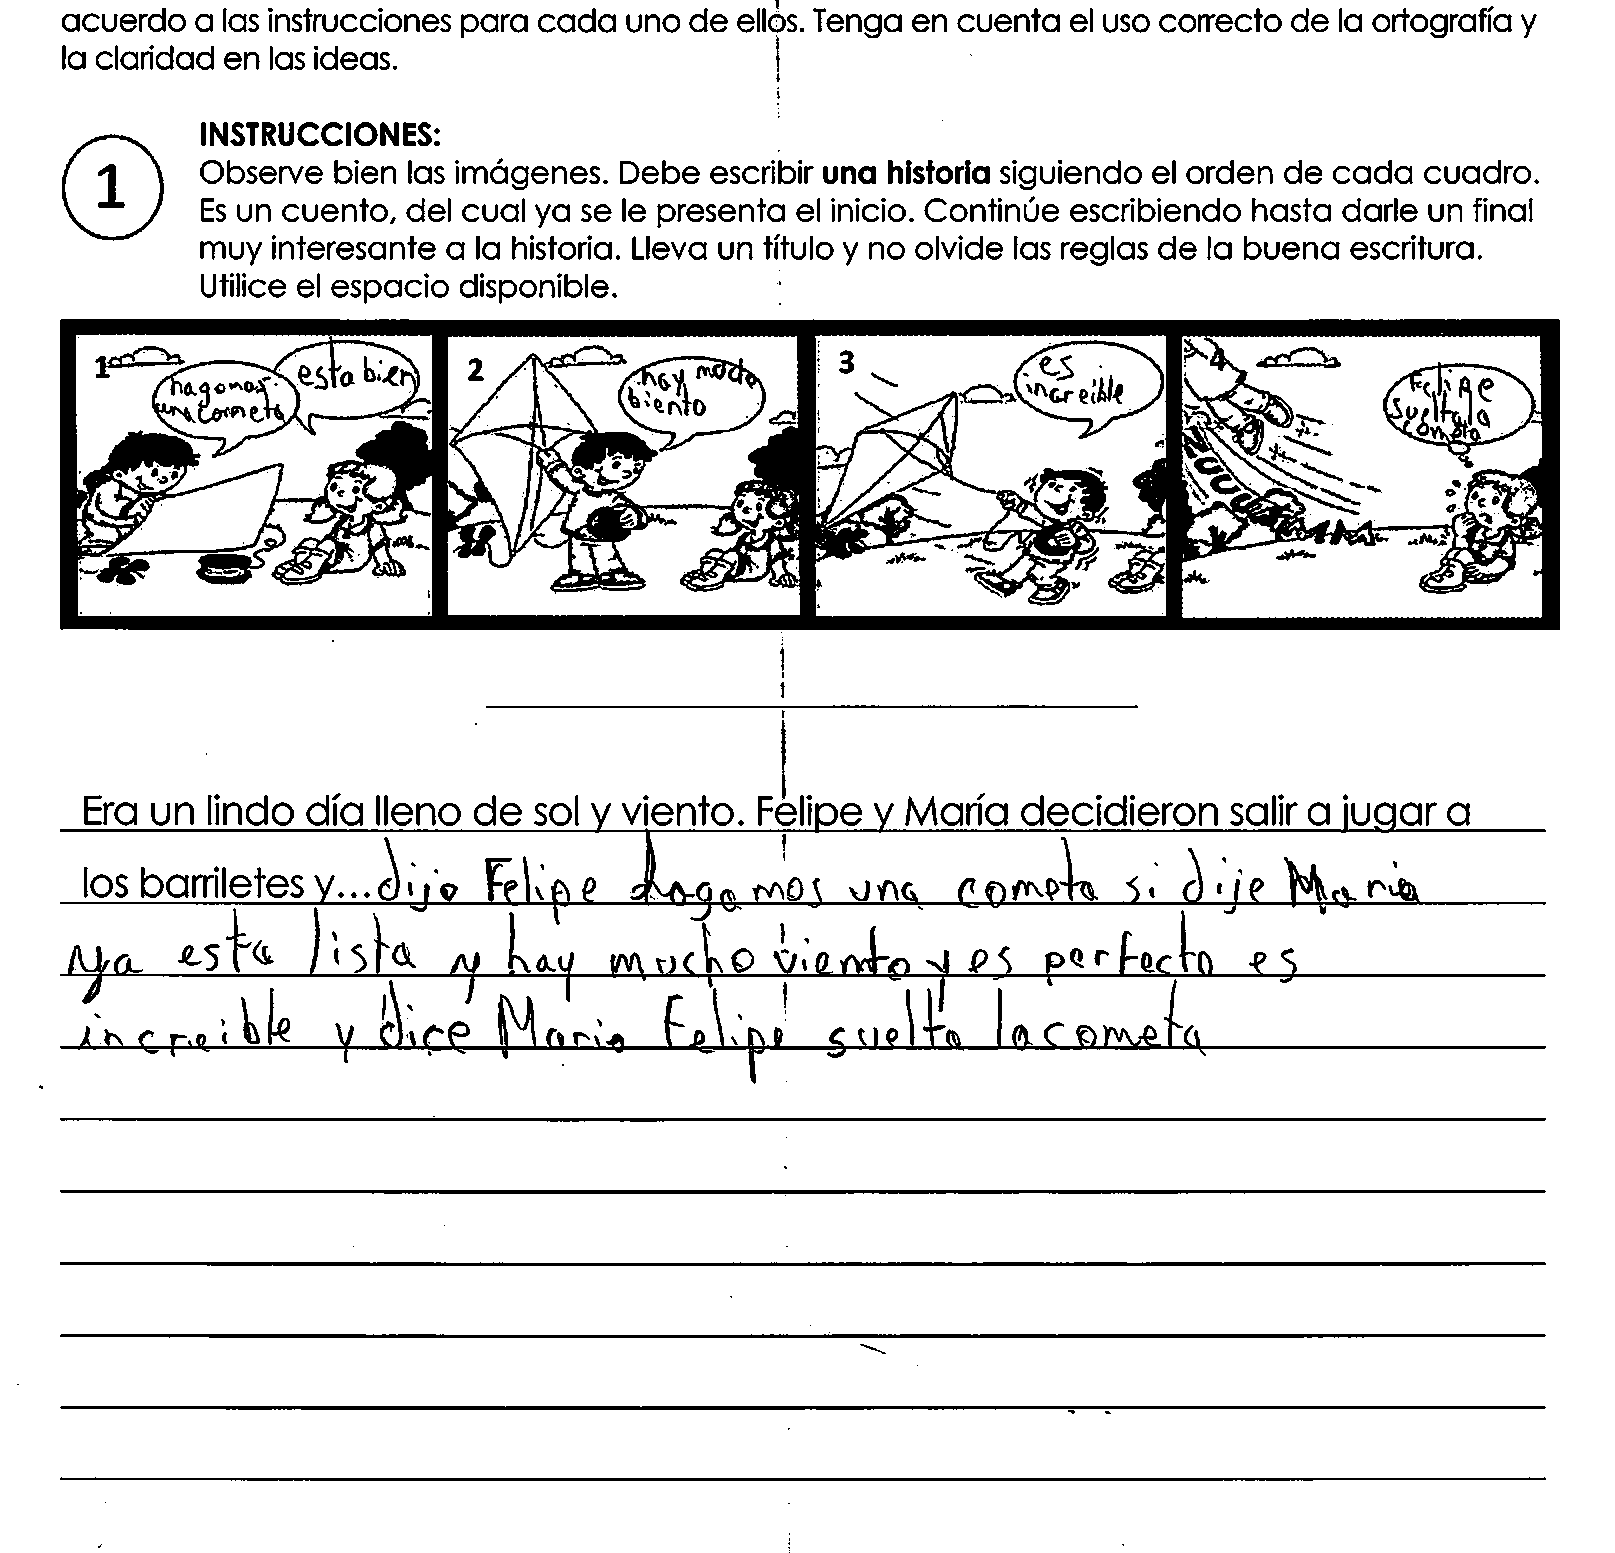 acuerdo a las instrucciones para cada uno de ellos. Tenga en cuenta el uso correcto de la ortografía y
la claridad en las ideas.
1
INSTRUCCIONES:
Observe bien las imágenes. Debe escribir una historia siguiendo el orden de cada cuadro.
Es un cuento, del cual ya se le presenta el inicio. Continúe escribiendo hasta darle un final
muy interesante a la historia. Lleva un título y no olvide las reglas de la buena escritura.
Utilice el espacio disponible.
1
hagomos
una cometa
esta bien
2
hay
biento
3
es
increible
4
Felipe
suelta la
cometa
Era un lindo día lleno de sol y viento. Felipe y María decidieron salir a jugar a
los barriletes y...dijo Felipe hagamos una cometa si dije Maria
ya esta lista y hay mucho viento y es perfecto es
increible y dice Maria Felipe suelta la cometa